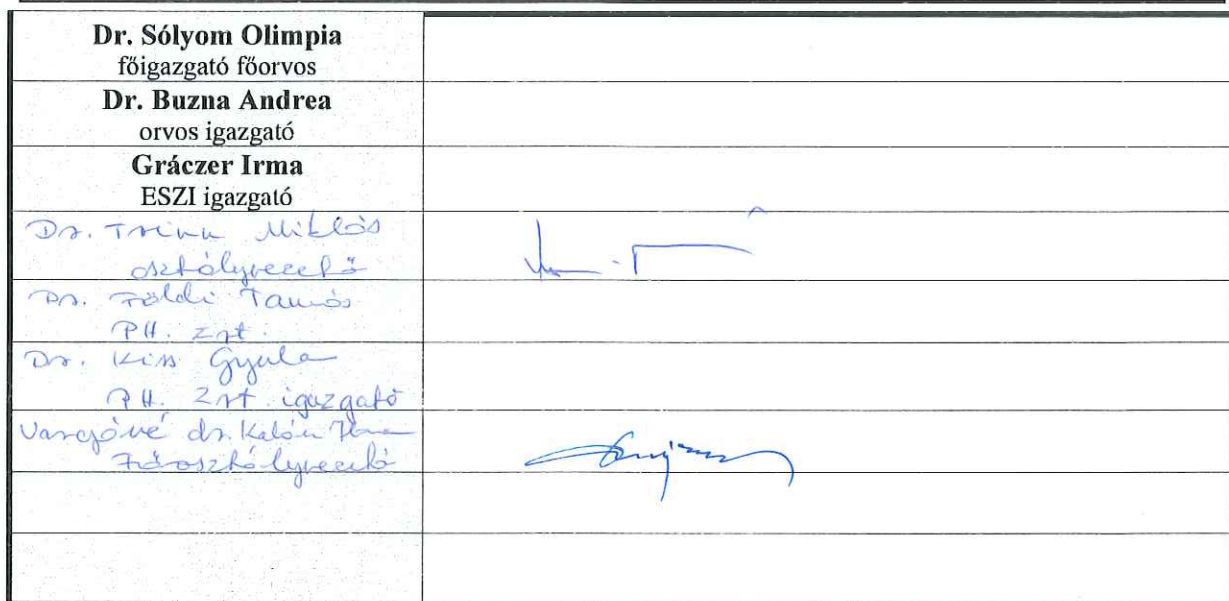 Dr. Sólyom Olimpia
főigazgató főorvos
Dr. Buzna Andrea
orvos igazgató
Gráczer Irma
ESZI igazgató
Dr. Trinn Miklós
osztályvezető
Dr. Földi Tamás
PH. Zrt.
Dr. Kiss Gyula
PH. Zrt. igazgató
dr.